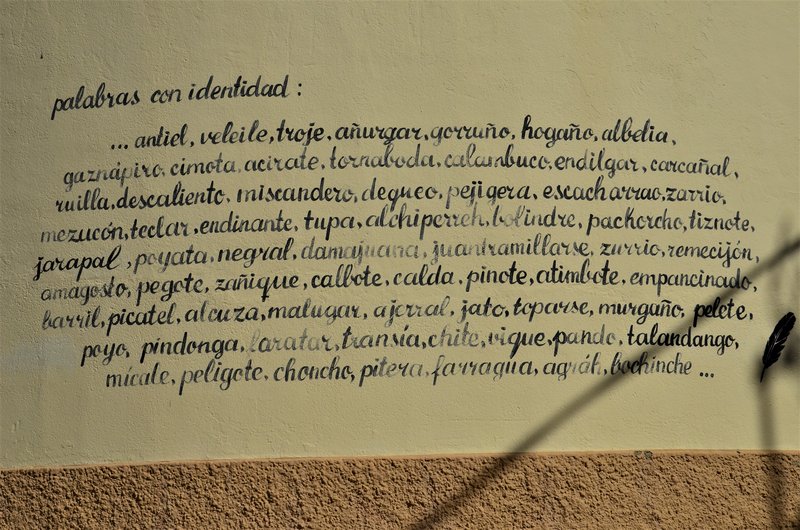 palabras con identidad :
... antiel, veleile, troje, añurgar, gorruño, hogaño, albelia,
gaznápiro, cimota, acirate, tornaboda, calambuco, endilgar, carcañal,
ruilla, descaliento, miscandero, dequeo, pejigera, escacharrao, zarrio,
mezucón, teclar, endinante, tupa, alchiperreh, bolindre, pachorcho, tiznote,
jarapal, poyata, negral, damajuana, juantramillarse, zurrio, remecijón,
amagosto, pegote, zañique, calbote, calda, pinote, atimbote, empancinado,
barril, picatel, alcuza, malugar, ajerral, jato, toparse, murgaño, pelete,
poyo, pindonga, faratar, transía, chite, vique, pando, talandango,
micale, peligote, choncho, pitera, farragua, agráh, bochinche ...